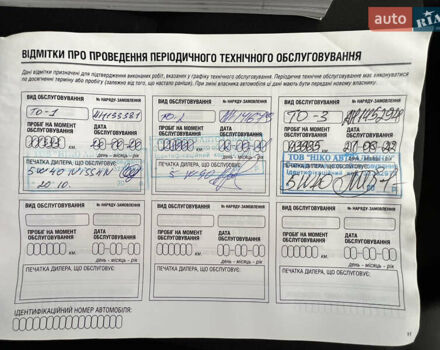 auto
RIA
ВІДМІТКИ ПРО ПРОВЕДЕННЯ ПЕРІОДИЧНОГО ТЕХНІЧНОГО ОБСЛУГОВУВАННЯ
Дані відмітки призначені для підтвердження виконаних робіт, вказаних у графіку технічного обслуговування. Періодичне технічне обслуговування має виконуватися
по досягненні терміну або пробігу (залежно від того, що настало раніше). При зміні власника автомобіля ці дані мають бути передані новому власнику.
ВИД ОБСЛУГОВУВАННЯ № НАРЯДУ-ЗАМОВЛЕННЯ ВИД ОБСЛУГОВУВАННЯ № НАРЯДУ-ЗАМОВЛЕННЯ ВИД ОБСЛУГОВУВАННЯ № НАРЯДУ-ЗАМОВЛЕННЯ
ТО-1 ТО-2 ТО-3
ПРОБІГ НА МОМЕНТ ДАТА ПРОБІГ НА МОМЕНТ ДАТА ПРОБІГ НА МОМЕНТ ДАТА
ОБСЛУГОВУВАННЯ ОБСЛУГОВУВАННЯ ОБСЛУГОВУВАННЯ
день - місяць - рік день - місяць - рік
ТОВ "НІКО
ПЕЧАТКА ДИЛЕРА, ЩО ОБСЛУГОВУЄ: ПЕЧАТКА ДИЛЕРА, ЩО ОБСЛУГОВУЄ: ПЕЧАТКА ДИЛЕРА, ЩО ОБСЛУГОВУЄ:
5W40 NISSAN 5W40 5W40
20.10.
ВИД ОБСЛУГОВУВАННЯ № НАРЯДУ-ЗАМОВЛЕННЯ ВИД ОБСЛУГОВУВАННЯ № НАРЯДУ-ЗАМОВЛЕННЯ ВИД ОБСЛУГОВУВАННЯ № НАРЯДУ-ЗАМОВЛЕННЯ
ПРОБІГ НА МОМЕНТ ДАТА ПРОБІГ НА МОМЕНТ ДАТА ПРОБІГ НА МОМЕНТ ДАТА
ОБСЛУГОВУВАННЯ ОБСЛУГОВУВАННЯ ОБСЛУГОВУВАННЯ
день - місяць - рік день - місяць - рік день - місяць - рік
ПЕЧАТКА ДИЛЕРА, ЩО ОБСЛУГОВУЄ: ПЕЧАТКА ДИЛЕРА, ЩО ОБСЛУГОВУЄ: ПЕЧАТКА ДИЛЕРА, ЩО ОБСЛУГОВУЄ:
ІДЕНТИФІКАЦІЙНИЙ НОМЕР АВТОМОБІЛЯ: